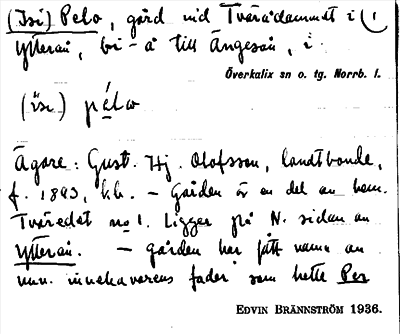 (Isi) Pelo, gård vid Tvärådammet i (i
Ytterån, bi-å till Ängesån, i
Överkalix sn o. tg. Norrb. l.
(isi) pélo
Ägare: Gust. Hj. Olofsson, landtbonde,
f. 1893, h.h. – Gården är en del av hem.
Tväredet no 1. Ligger på N. sidan av
Ytterån. – gården har fått namn av
nuv. innehavarens fader som hette Per
EDVIN BRÄNNSTRÖM 1936.